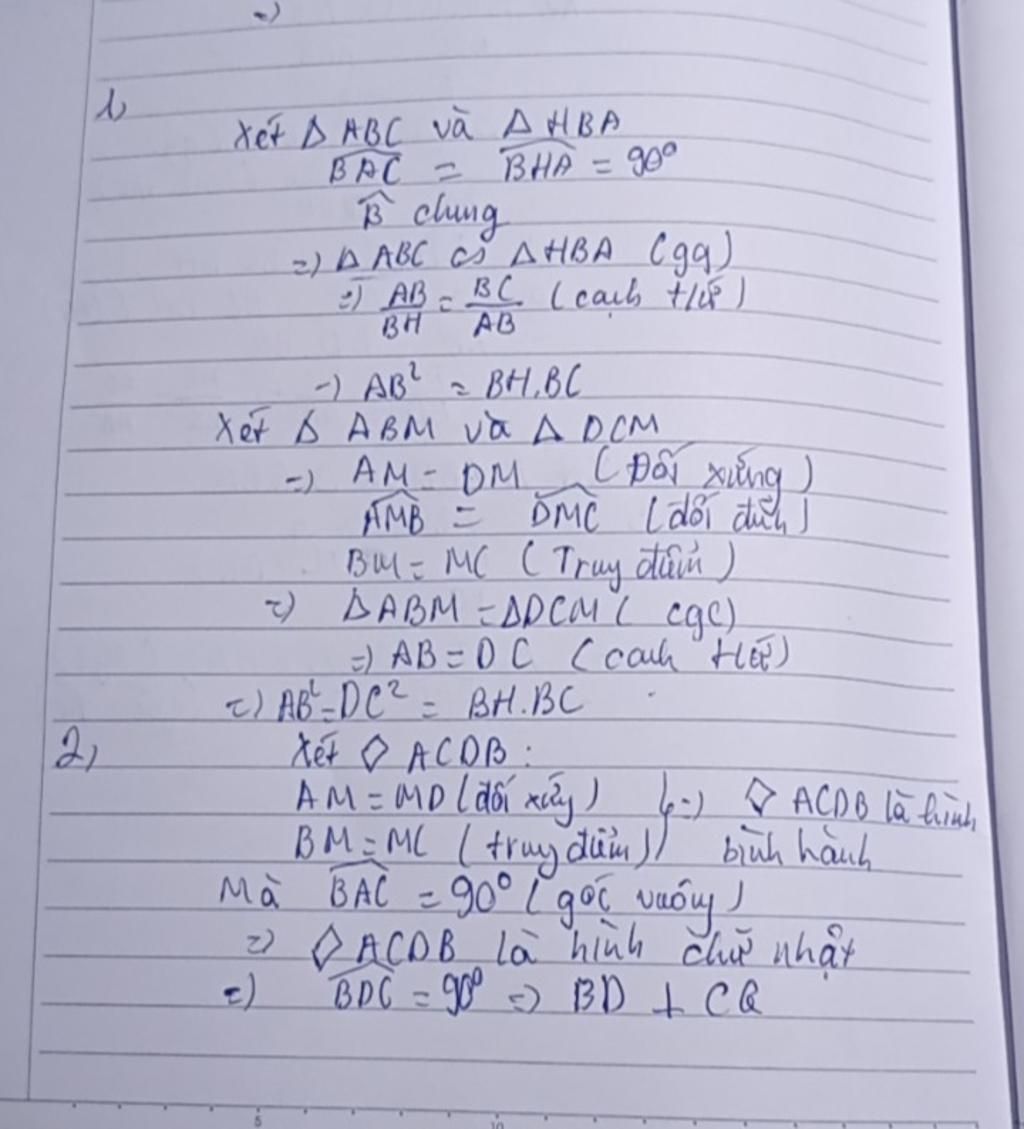 =)
1)
Xét Δ ABC và Δ HBA
BAC = BHA = 90°
B̂ chung
=) Δ ABC ∽ Δ HBA (gg)
=) AB/BH = BC/AB (cạnh tlứ)
=) AB² = BH.BC
Xét Δ ABM và Δ DCM
=) AM = DM (Đối xứng)
AMB = DMC (đối đỉnh)
BM = MC (Trug điểm)
=) ΔABM = ΔDCM ( cgc)
=) AB = DC (cạnh tlứ)
=) AB² = DC² = BH.BC
2) Xét ◇ ACDB :
AM = MD (đối xứng) } =) ◇ ACDB là hình
BM = MC (trug điểm) bình hành
Mà BAC = 90° (góc vuông)
=) ◇ ACDB là hình chữ nhật
=) BDC = 90° => BD ⊥ CQ
5 10